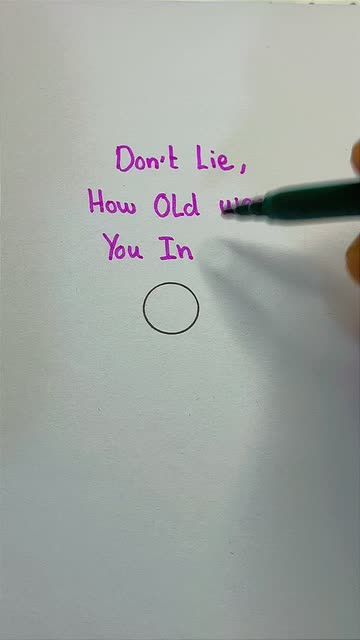 Don't Lie,
How OLd
You In